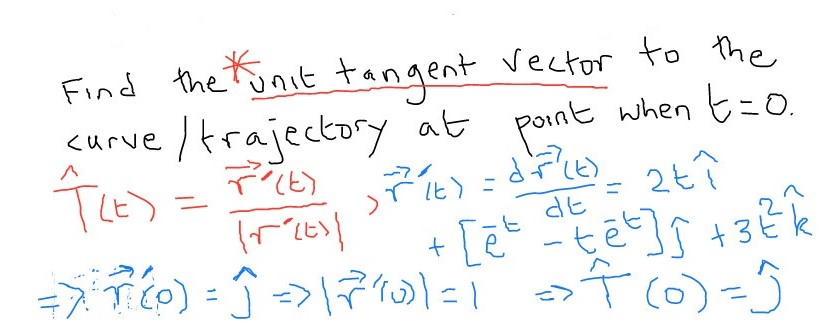 Find the *unit tangent vector to the
curve/trajectory at point when t=0.
T̂(t) = r⃗′(t)/|r⃗′(t)| , r⃗′(t) = dr⃗(t)/dt = 2t î
+ [ēᵗ - t ēᵗ] ĵ + 3t² k̂
=> r⃗′(0) = ĵ => |r⃗′(0)| = 1 => T̂(0) = ĵ